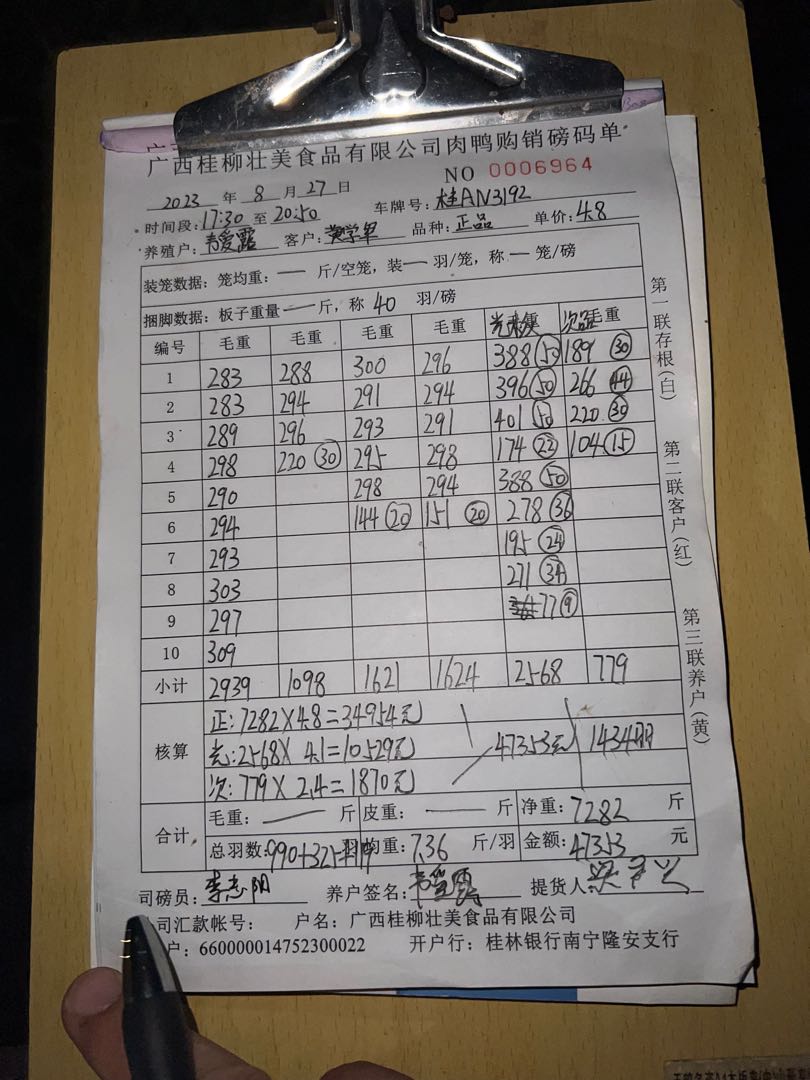 广西桂柳壮美食品有限公司肉鸭购销磅码单
NO 0006964
2023 年 8 月 27 日
时间段:17:30 至 20:50 车牌号:桂AN3192
养殖户:韦爱露 客户: 品种:正品 单价:4.8
装笼数据:笼均重:— 斤/空笼,装— 羽/笼,称— 笼/磅
捆脚数据:板子重量— 斤,称 40 羽/磅
编号 毛重 毛重 毛重 毛重 次品 毛重
1 283 288 300 296 388 (50) 189 (30)
2 283 294 291 294 396 (50) 266 (44)
3 289 296 293 291 401 (50) 220 (30)
4 298 220 (30) 295 298 174 (22) 104 (15)
5 290 298 294 388 (50)
6 294 144 (20) 151 (20) 278 (36)
7 293 195 (24)
8 303 271 (34)
9 297 77 (9)
10 309
小计 2939 1098 1621 1624 2568 779
核算
正:7282×4.8=34954元
光:2568×4.1=10529元 47353元 1434羽
次:779×2.4=1870元
合计 毛重:— 斤 皮重:— 斤 净重:7282 斤
总羽数:990+325+119 羽 均重:7.36 斤/羽 金额:47353 元
司磅员:李志阳 养户签名:韦爱露 提货人:
公司汇款帐号: 户名:广西桂柳壮美食品有限公司
户:660000014752300022 开户行:桂林银行南宁隆安支行
第一联存根(白)
第二联客户(红)
第三联养户(黄)